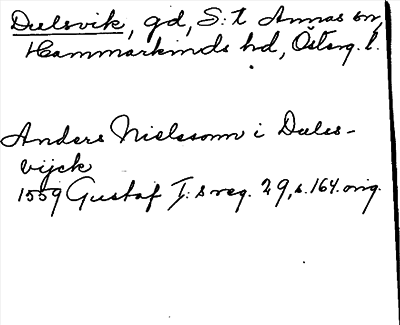 Dulsvik, gd, S:t Annas sn,
Hammarkinds hd, Österg. l.
Anders Nielssonn i Duls-
vijck
1559 Gustaf I:s reg. 29, s. 164. orig.